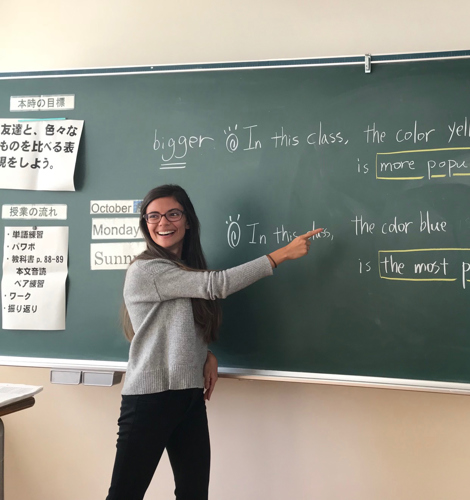 本時の目標
友達と、色々な
ものを比べる表
現をしよう。
授業の流れ
・単語練習
・パワポ
・教科書 p.88-89
本文音読
ペア練習
・ワーク
・振り返り
October
Monday
Sunny
bigger
@ In this class, the color yel
is more popu
@ In this class, the color blue
is the most p